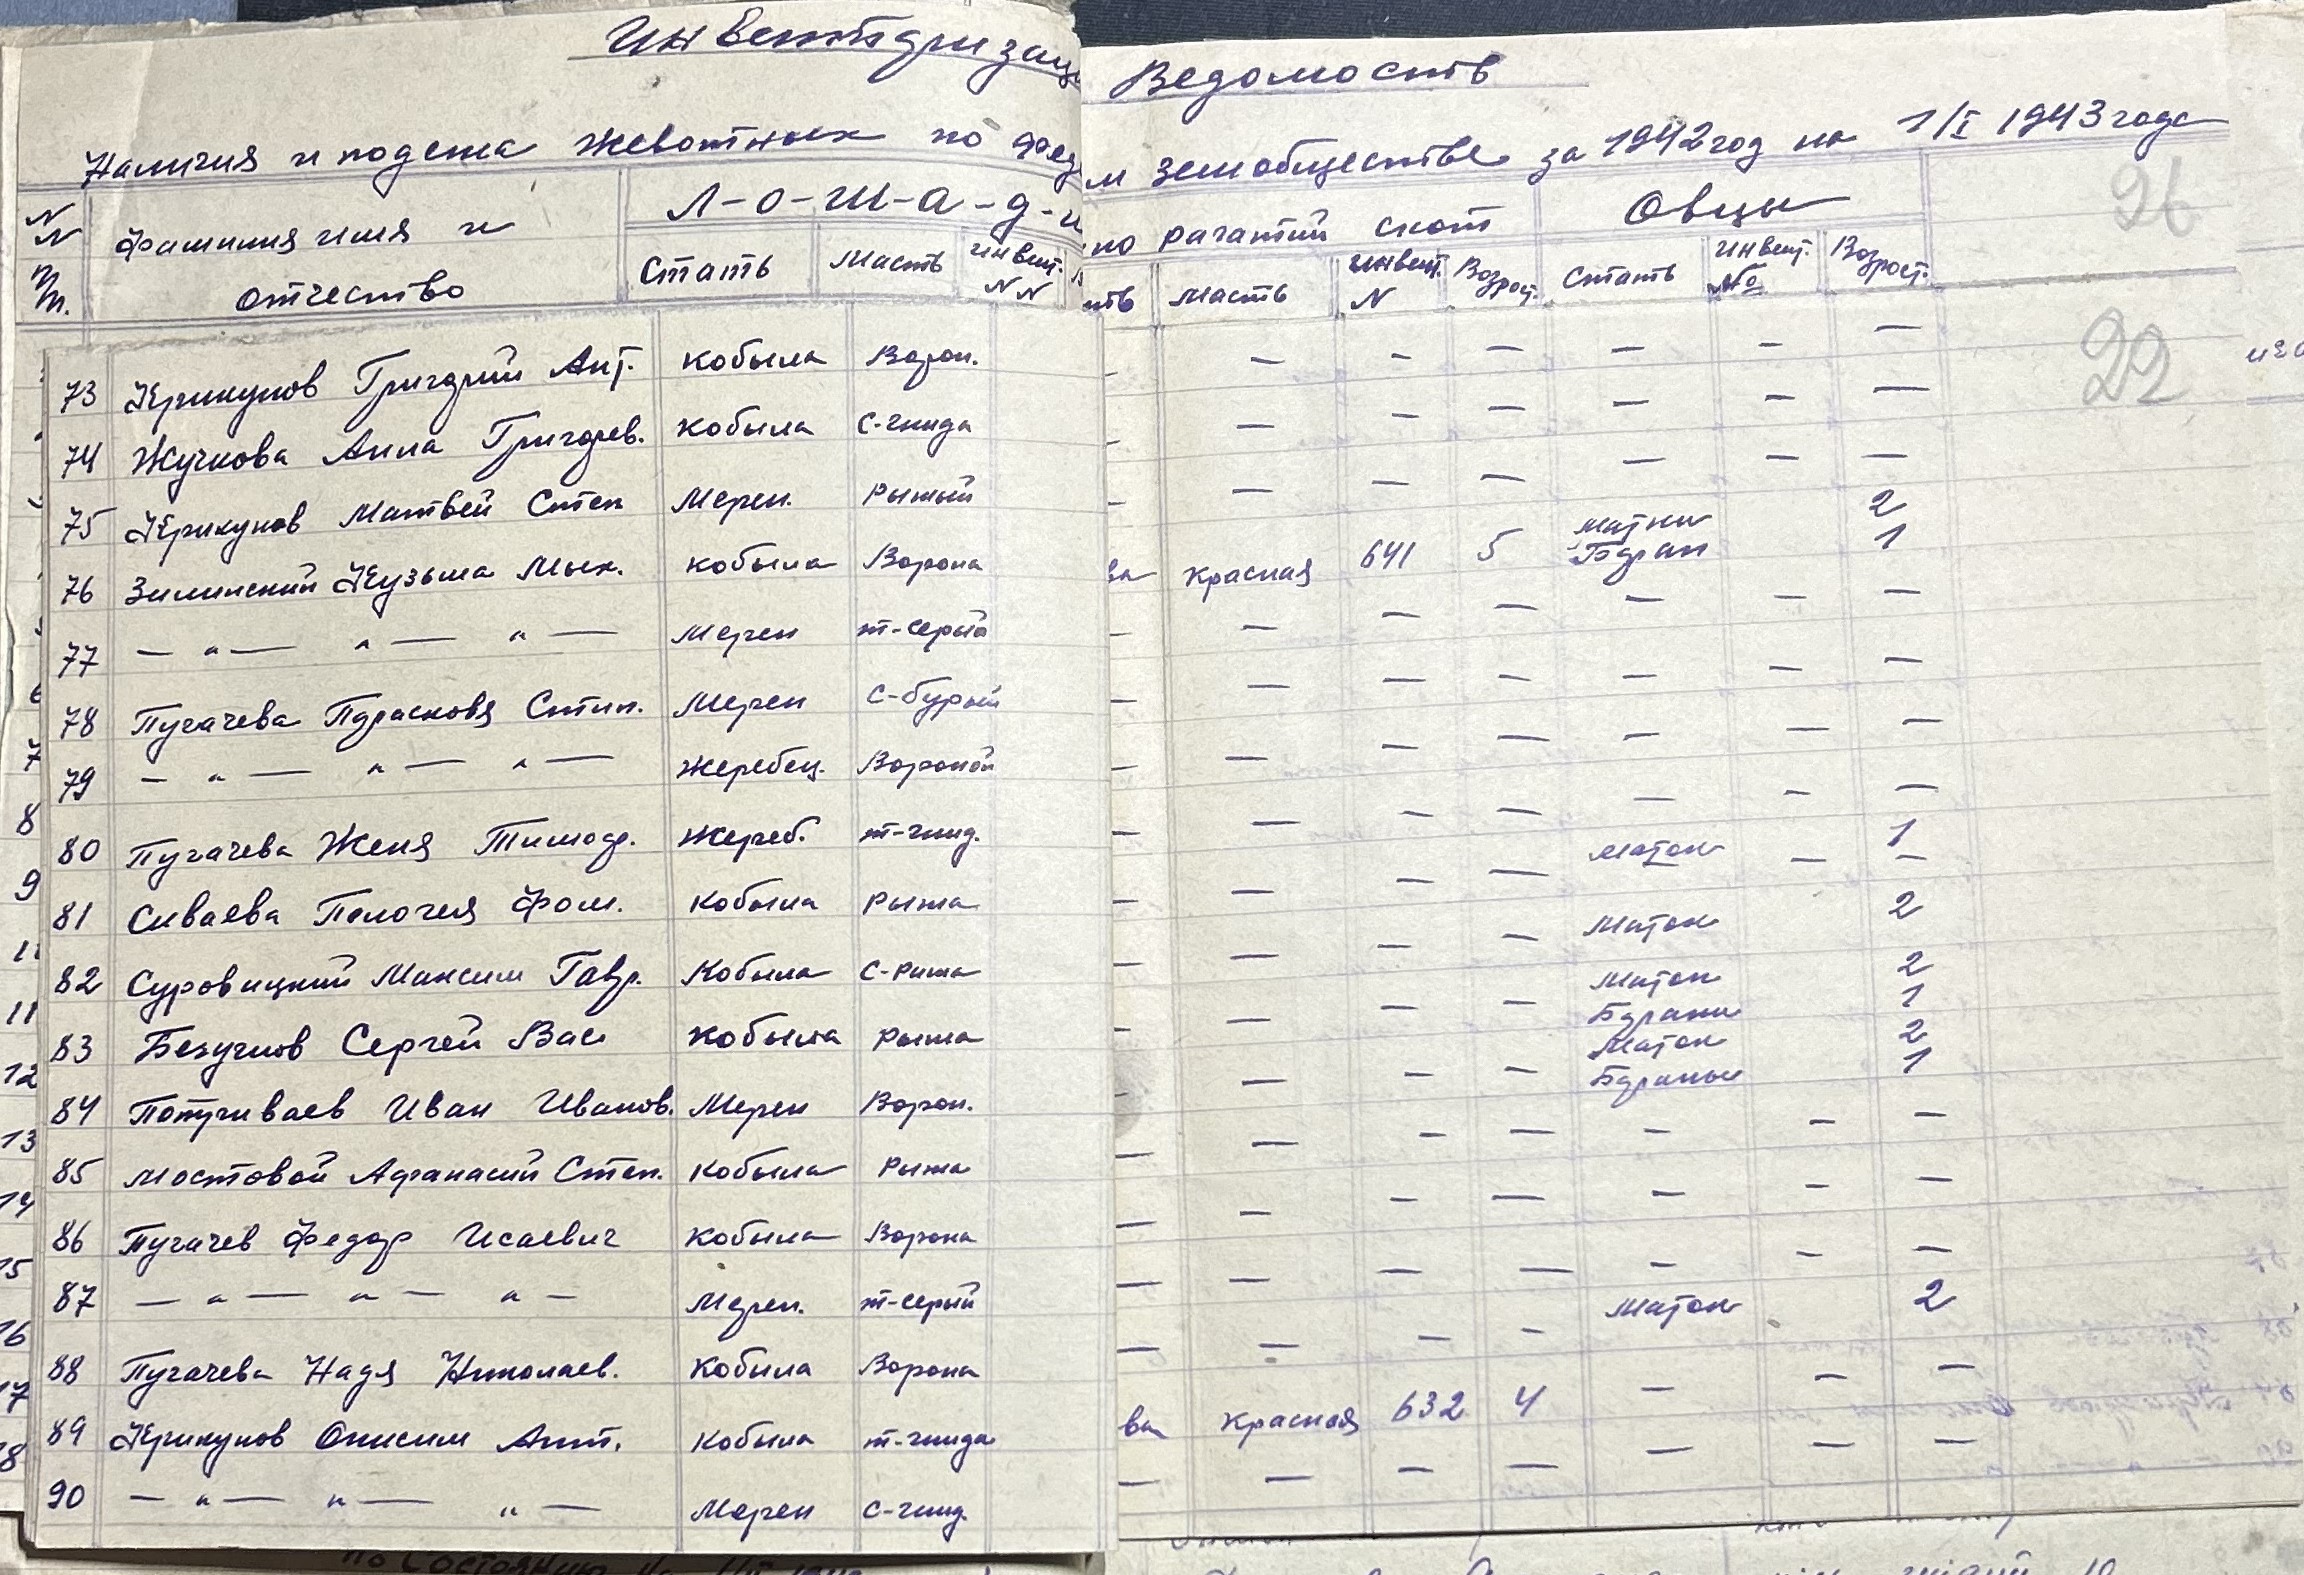 Инвентаризац
Ведомость
Наличия и подема жевотных по Фед
м земобществе за 1942 год на 1/I 1943 года
NN пп. фамилия имя и отчество
Л-о-ш-а-д-и
Стать Масть Инвент. NN
но рагатий скот
ть Масть Инвент. N Возрост.
Овцы
Стать Инвент. № Возрост.
96
22
73 Крикунов Григорий Ант. Кобыла Ворон. — — — — — — —
74 Жучкова Анна Григорев. Кобыла С-гнида — — — — — — —
75 Крикунов Матвей Степ Мерен. Рыжый — — — — — — —
76 Зилинский Кузьма Мих. Кобыла Ворона ва Красная 641 5 Матки 2
Баран 1
77 — „ — „ — „ — Мерен т-серый — — — — — — —
78 Пугачева Парасковя Стип. Мерен С-бурый — — — — — — —
79 — „ — „ — „ — Жеребец. Вороной — — — — — — —
80 Пугачева Женя Тимоф. Жереб. т-гнид. — — — — — — —
81 Сиваева Пелогея Фом. Кобыла Рыжа — — — — Маток — 1
—
82 Суровицкий Максим Гавр. Кобыла С-Рижа — — — — Маток 2
83 Безучнов Сергей Вас Кобыла Рыжа — — — — Маток 2
Барани 1
84 Потуиваев Иван Иванов. Мерен Ворон. — — — — Маток 2
Бараны 1
85 Мостовой Афанасий Степ. Кобыла Рыжа — — — — — —
86 Пугачев Федор Исаевич Кобыла Ворона — — — — — — —
87 — „ — „ — „ — Мерен. т-серый — — — — — — —
88 Пугачева Надя Николаев. Кобыла Ворона — — — — Маток 2
89 Крикунов Онисим Ант. Кобыла т-гнида ва Красная 632 4 — — —
90 — „ — „ — „ — Мерен С-гнид. — — — — — — —